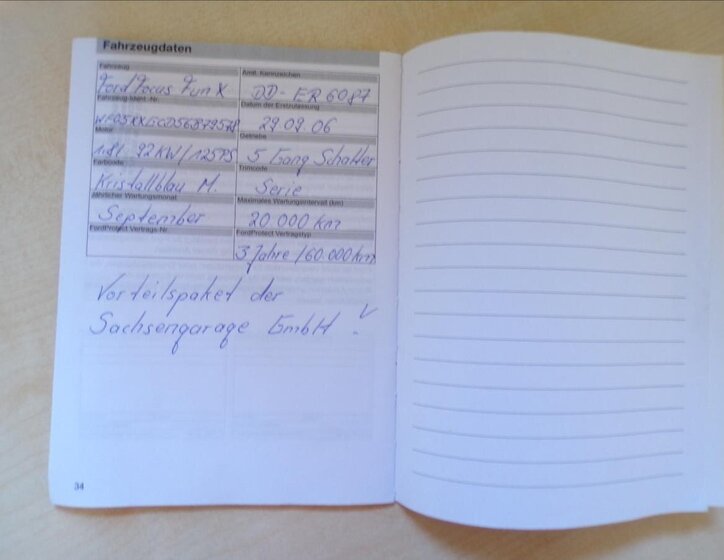 Fahrzeugdaten
Fahrzeug Amtl. Kennzeichen
Ford Focus Fun X DD-ER 6087
Fahrzeug-Ident.-Nr. Datum der Erstzulassung
29 09 06
Motor Getriebe
1.8l 92KW/125PS 5 Gang Schalter
Farbcode Trimcode
Kristallblau M. Serie
Jährlicher Wartungsmonat Maximales Wartungsintervall (km)
September 20.000 km
FordProtect Vertrags-Nr. FordProtect Vertragstyp
3 Jahre /60.000km
Vorteilspaket der
Sachsengarage GmbH !
34